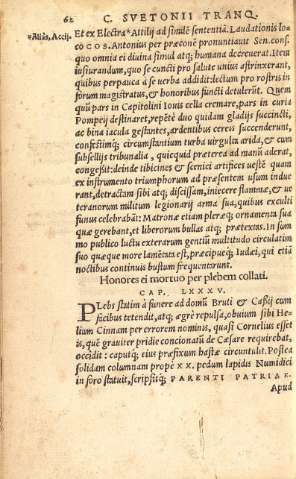 62 C. SVETONII TRANQ.
*Aliâs, Accij.
Et ex Electra *Attilij ad simile sententiã. Laudationis lo-
co cos. Antonius per præconẽ pronuntiavit Sen. cons.
quo omnia ei divina simul atq; humana decreverat. Item
iusiurandum, quo se cuncti pro salute unius astrinxerant,
quibus perpauca à se verba addidit. lectum pro rostris in
forum magistratus, & honoribus functi detulerũt. Quem
quũ pars in Capitolini Iouis cella cremare, pars in curia
Pompeij destinaret, repẽtè duo quidam gladijs succincti,
ac bina iacula gestantes, ardentibus cereis succenderunt,
confestimq; circumstantium turba virgulta arida, & cum
subsellijs tribunalia, quicquid præterea ad manũ aderat,
congessit: deinde tibicines & scenici artifices vestẽ quam
ex instrumento triumphorum ad præsentem usum indue
rant, detractam sibi atq; discissam, iniecere flammæ, & ve
teranorum militum legionarij arma sua, quibus exculti
funus celebrabãt: Matronæ etiam pleræq; ornamenta sua
quæ gerebant, et liberorum bullas atq; prætextas. In sum
mo publico luctu exterarum gentiũ multitudo circulatim
suo quæque more lamẽtata est, præcipueq; Iudæi, qui etiã
noctibus continuis bustum frequentarunt.
Honores ei mortuo per plebem collati.
CAP. LXXXV.
PLebs statim à funere ad domũ Bruti & Cassij cum
facibus tetendit, atq; ægrè repulsa, obuium sibi He-
lium Cinnam per errorem nominis, quasi Cornelius esset
is, quẽ graviter pridie concionatũ de Cæsare requirebat,
occidit: caputq; eius præfixum hastæ circuntulit. Postea
solidam columnam propè xx. pedum lapidis Numidici
in foro statuit, scripsitq; PARENTI PATRIAE.
Apud